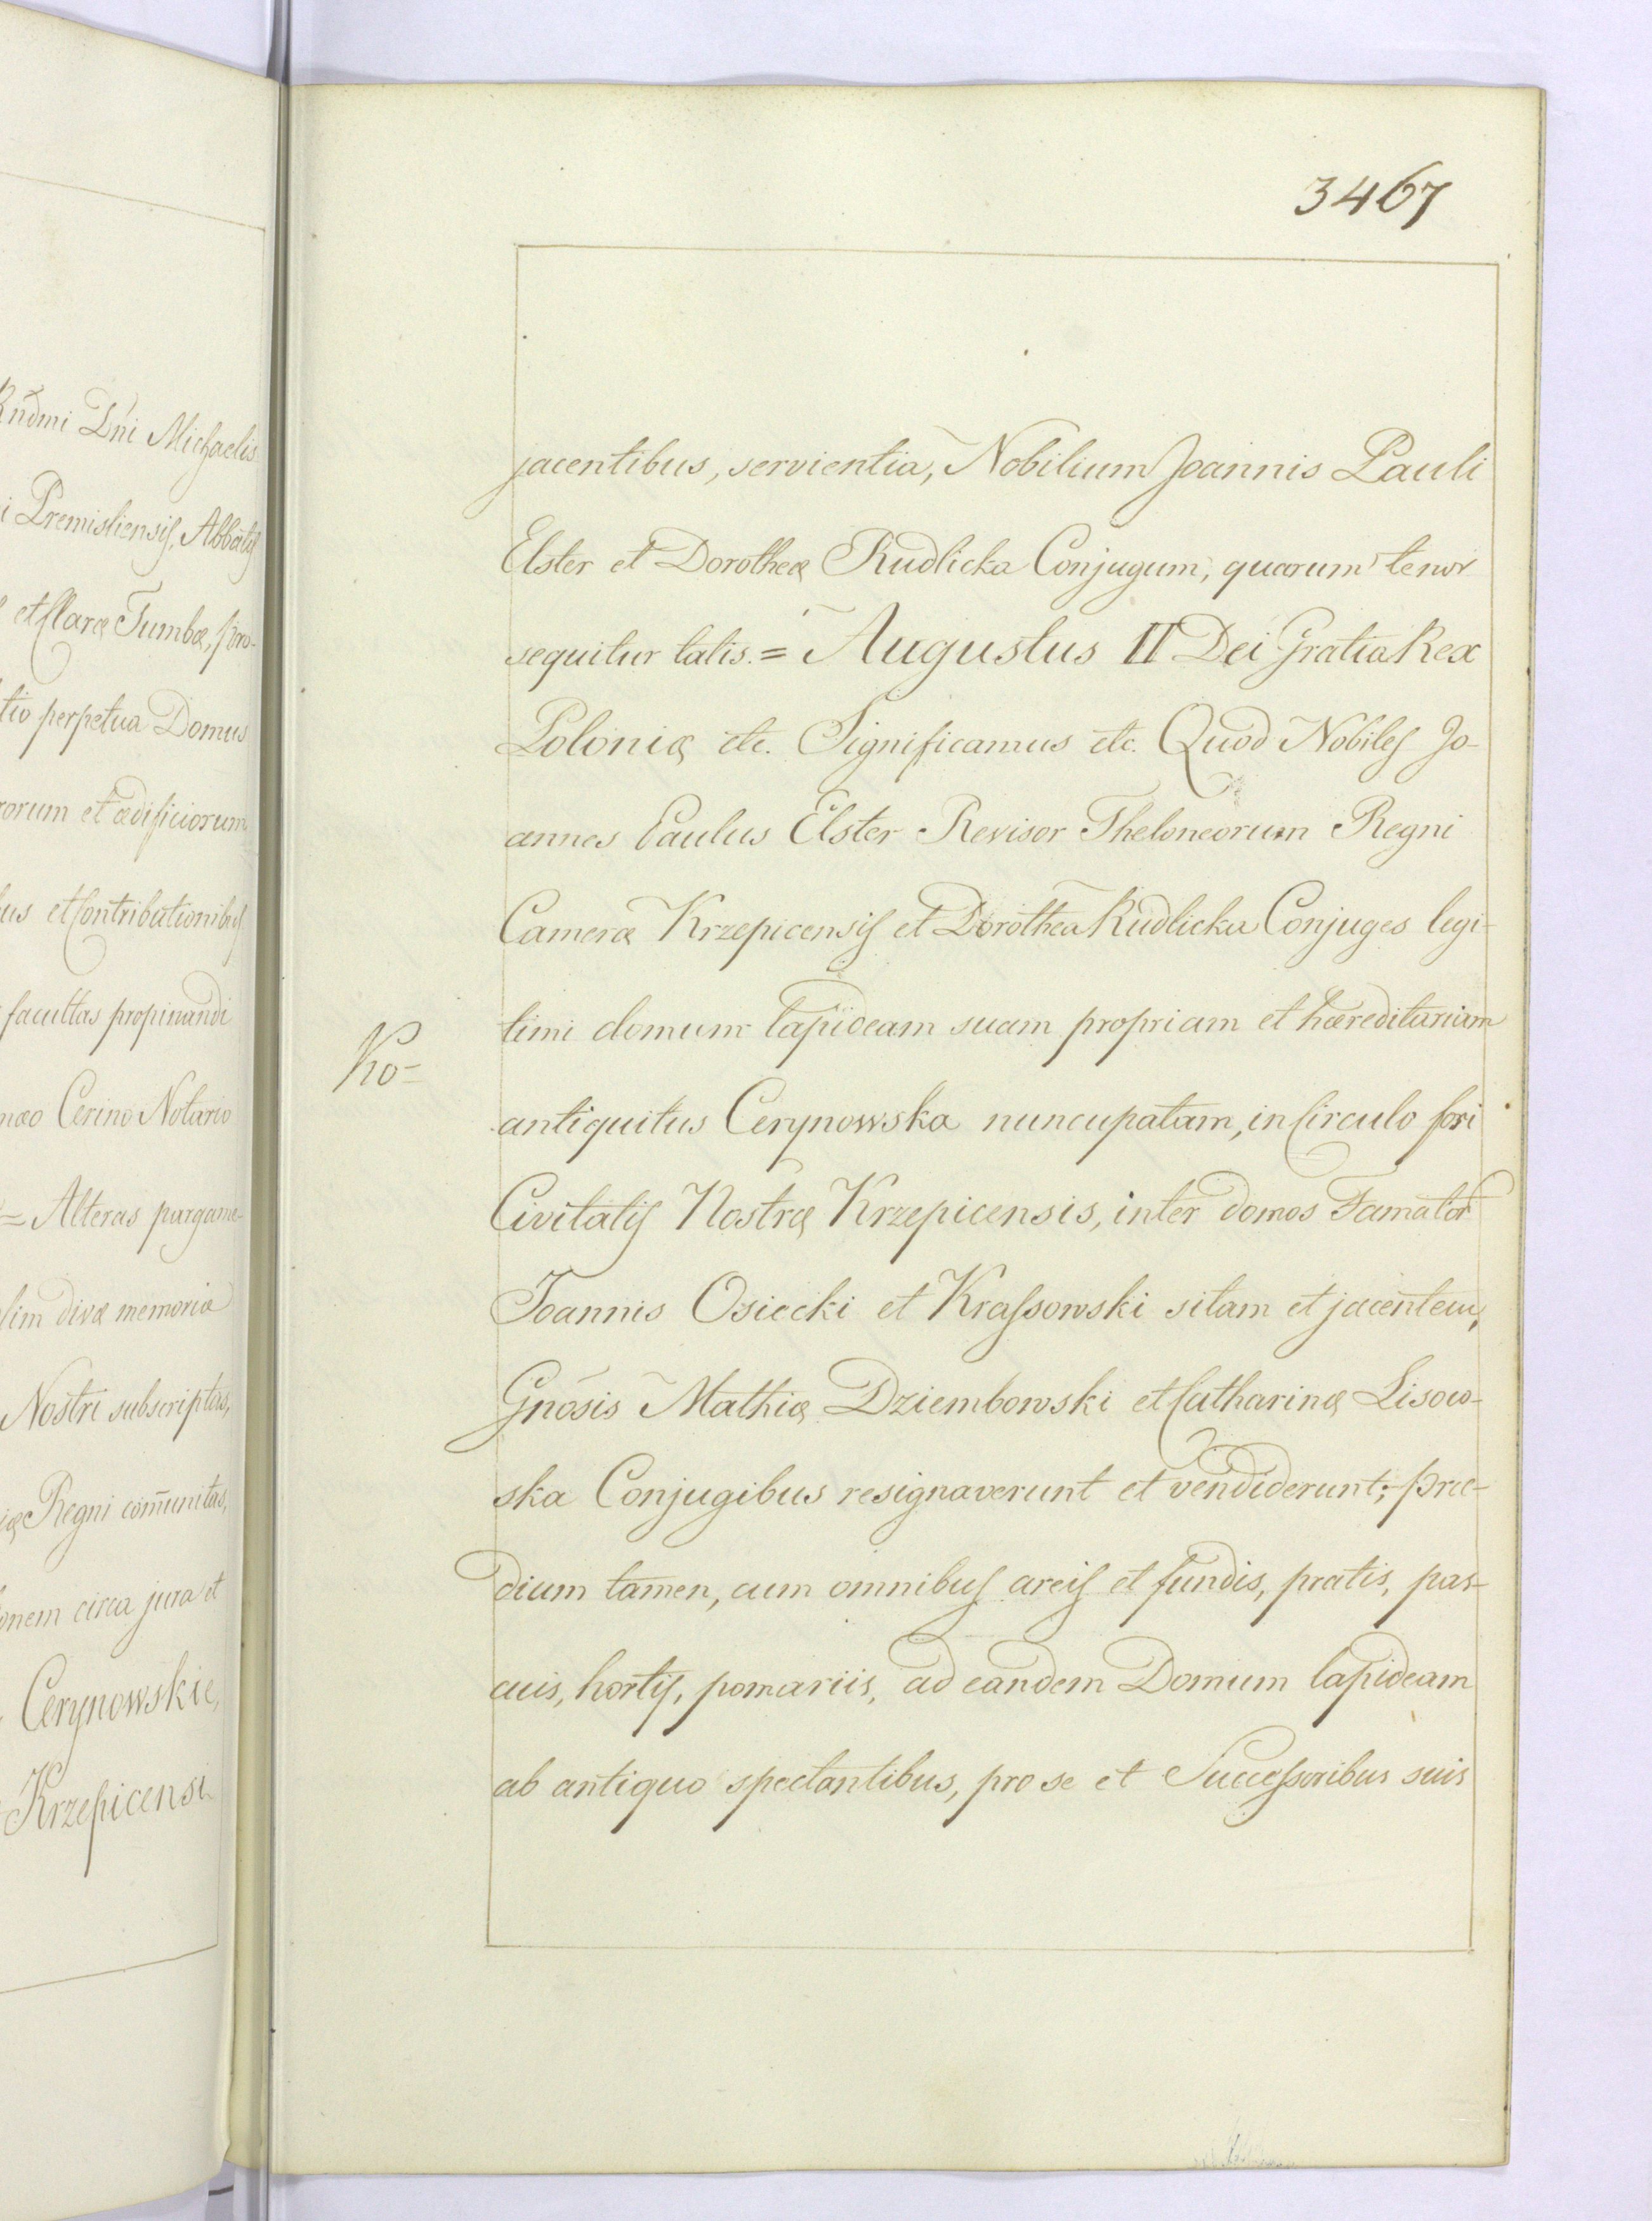 Rndmi Dni Michaelis
i Premisliensis, Abbatis
et Claræ Tumbæ, pro-
tio perpetua Domus
rorum et ædificiorum
us et Contributionibus
facultas propinandi
mæo Cerino Notario
= Alteras pargame-
lim divæ memoriæ
Nostri subscriptas,
iæ Regni com̄unitas,
onem circa jura et
Cerynowskie,
Krzepicensi
3467
jacentibus, servientia, Nobilium Joannis Pauli
Elster et Dorotheæ Rudlicka Conjugum, quarum tenor
sequitur talis. = Augustus II Dei Gratia Rex
Poloniæ etc. Significamus etc. Quod Nobiles Jo-
annes Paulus Elster Revisor Theloneorum Regni
Cameræ Krzepicensis et Dorothea Rudlicka Conjuges legi-
timi domum lapideam suam propriam et hæreditariam
Ko=
antiquitus Cerynowska nuncupatam, in Circulo fori
Civitatis Nostræ Krzepicensis, inter domos Famator
Joannis Osiecki et Krassowski sitam et jacentem,
Gnosis Mathiæ Dziembowski et Catharinæ Lisow-
ska Conjugibus resignaverunt et vendiderunt; præ-
dium tamen, cum omnibus areis et fundis, pratis, pas-
cuis, hortis, pomariis, ad eandem Domum lapideam
ab antiquo spectantibus, pro se et Successoribus suis